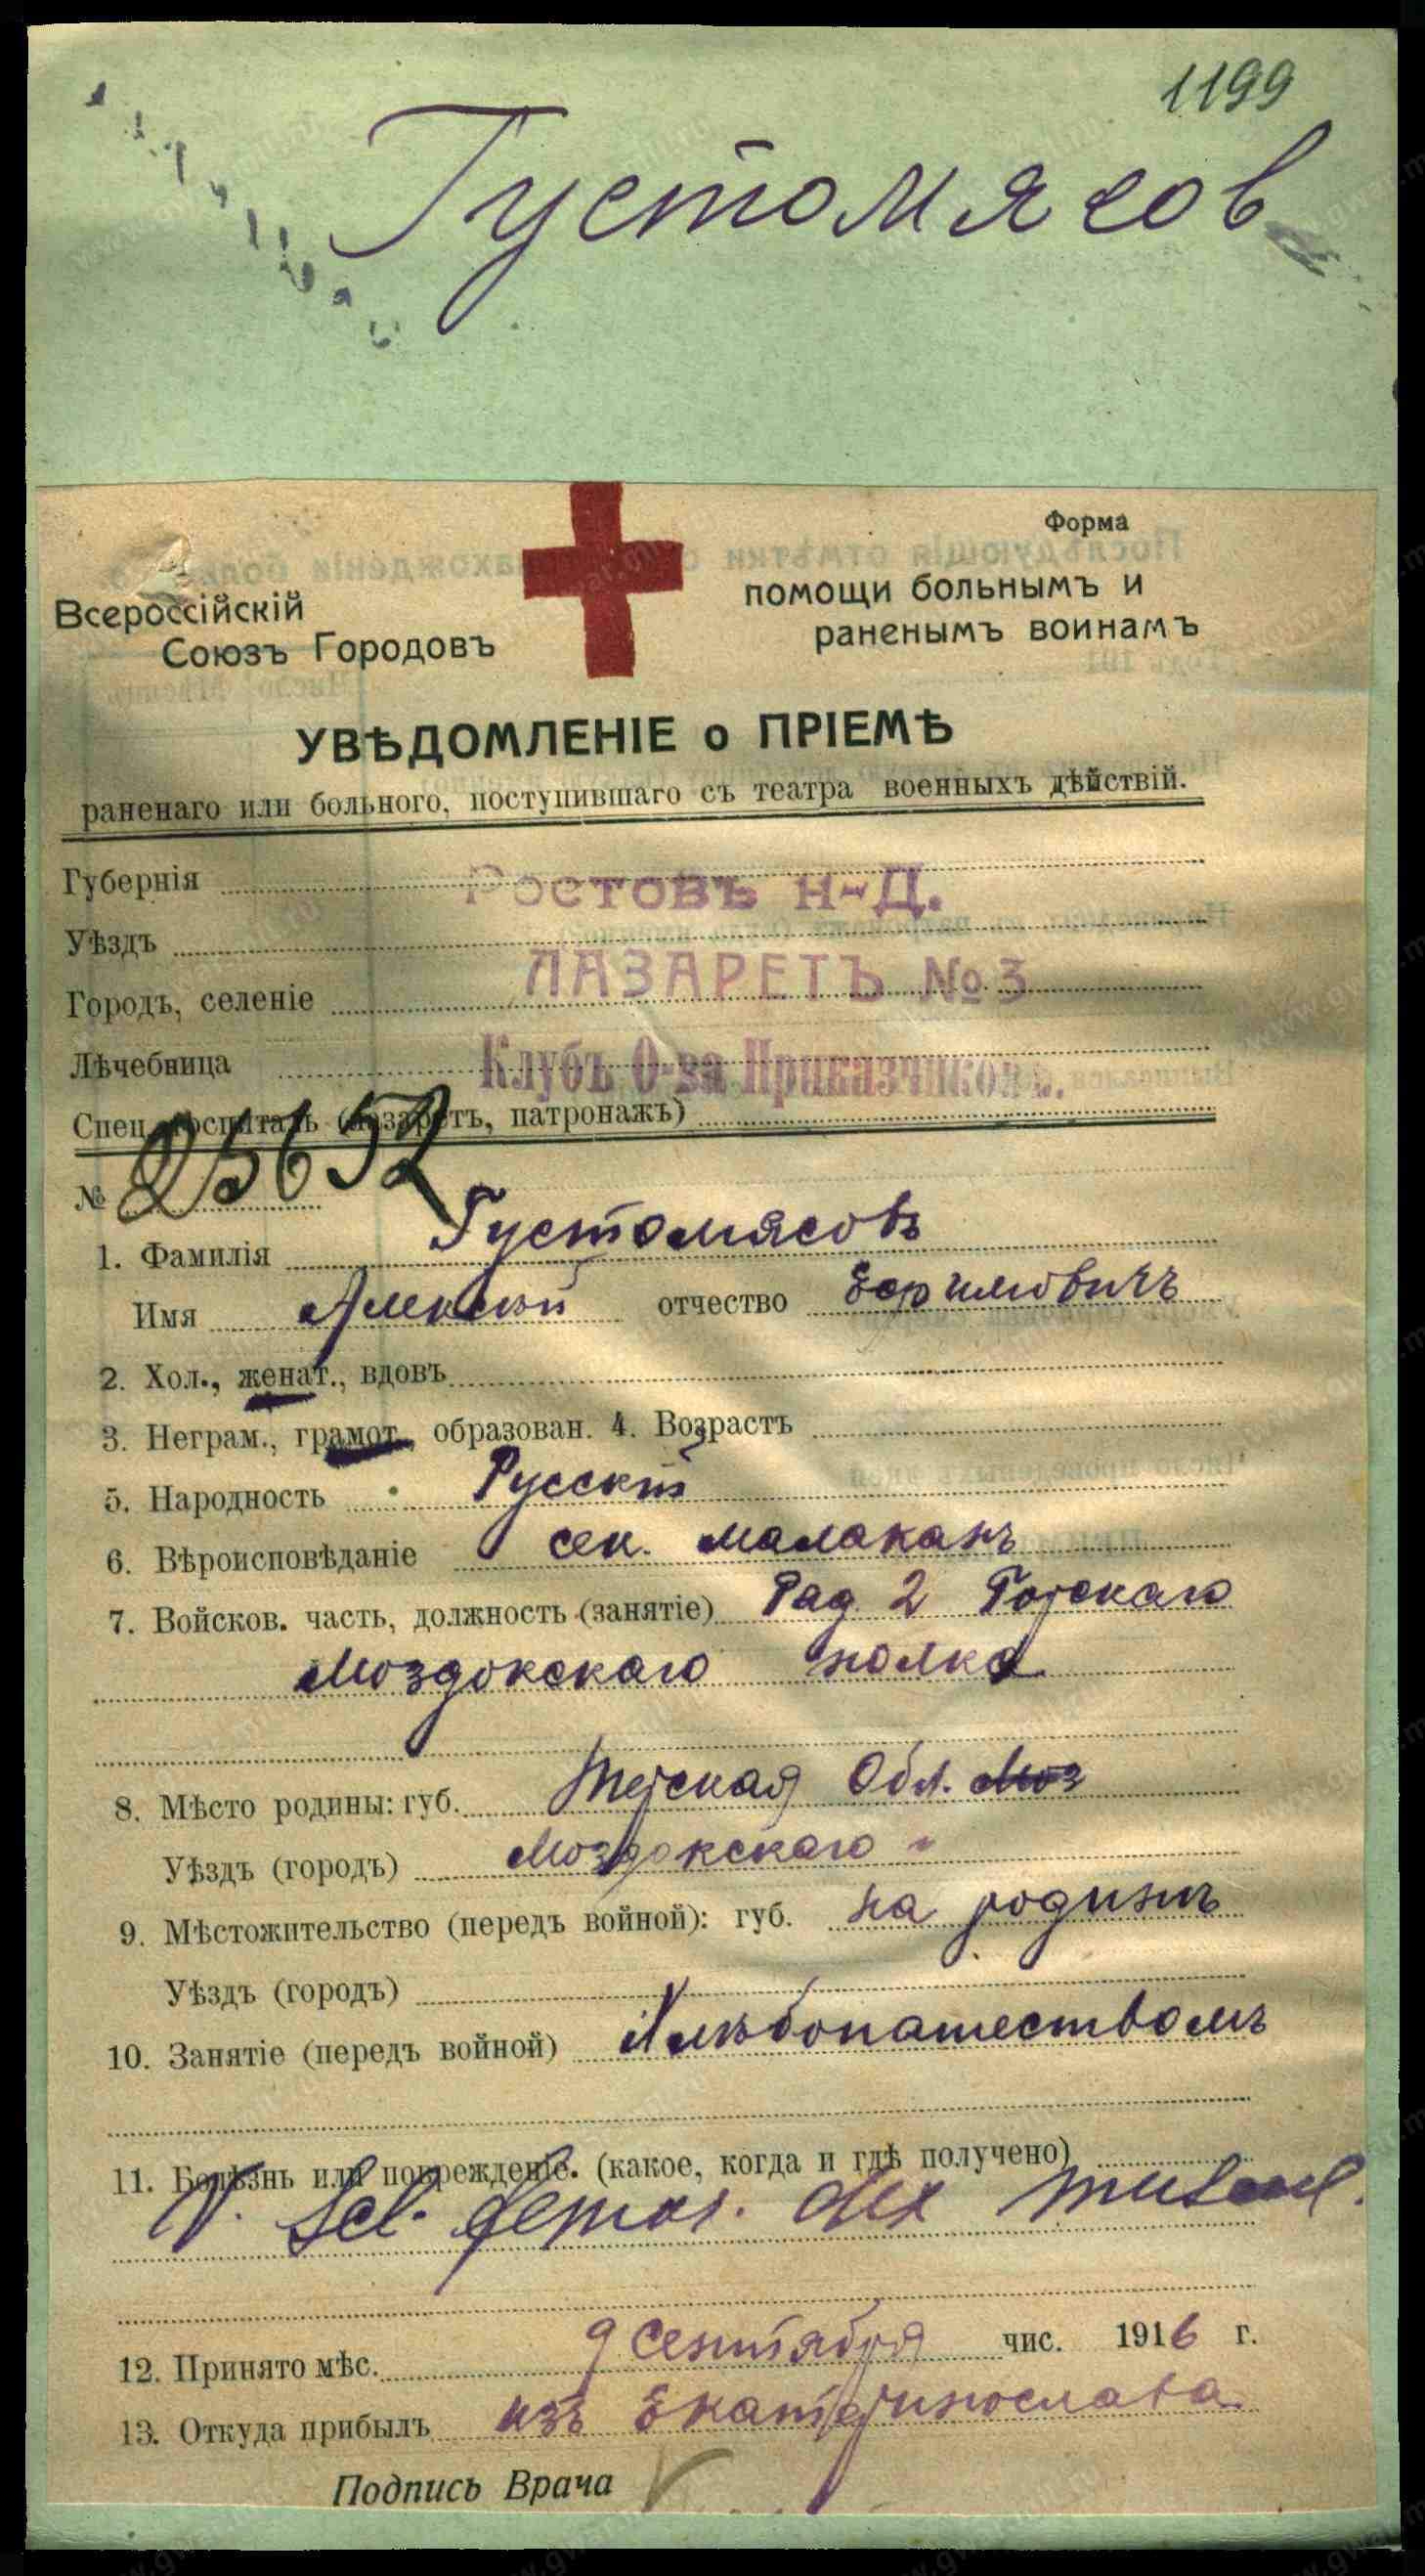 1199
Густомясов
Форма
Всероссійскій
Союзъ Городовъ
помощи больнымъ и
раненымъ воинамъ
УВѢДОМЛЕНІЕ о ПРІЕМѢ
раненаго или больного, поступившаго съ театра военныхъ дѣйствій.
Губернія Ростовъ Н-Д.
Уѣздъ
Городъ, селеніе ЛАЗАРЕТЪ № 3
Лѣчебница Клубъ О-ва Приказчиковъ.
Спец. госпиталь (лазаретъ, патронажъ)
№ 25652
1. Фамилія Густомясовъ
Имя Алексѣй отчество
2. Хол., женат., вдовъ
3. Неграм., грамот., образован. 4. Возрастъ
5. Народность Русскій
6. Вѣроисповѣданіе сек. малаканъ
7. Войсков. часть, должность (занятіе) Ряд. 2 Горскаго
Моздокскаго полка
8. Мѣсто родины: губ. Терская Обл. Моз
Уѣздъ (городъ) Моздокскаго
9. Мѣстожительство (передъ войной): губ. на родинѣ
Уѣздъ (городъ)
10. Занятіе (передъ войной) Хлѣбопашествомъ
11. Болѣзнь или поврежденіе. (какое, когда и гдѣ получено)
V. Scl. dex
12. Принято мѣс. 9 Сентября чис. 1916 г.
13. Откуда прибылъ изъ Екатеринослава
Подпись Врача